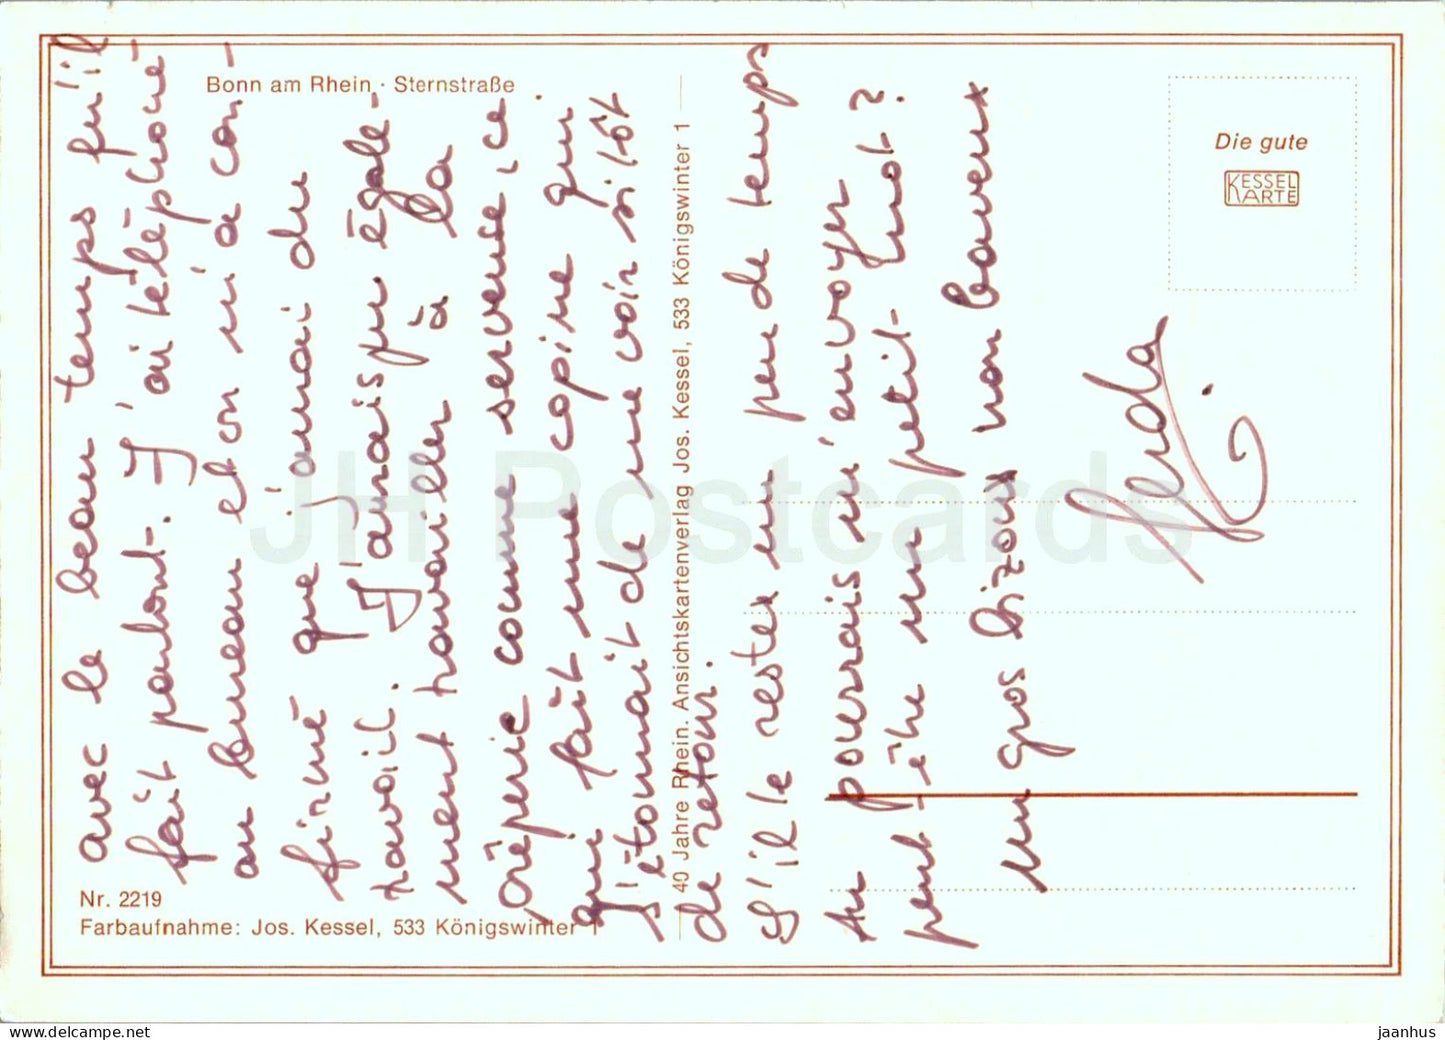 Bonn am Rhein · Sternstraße
avec le beau temps qu'il
fait partout. J'ai téléphoné
au bureau et on m'a con-
firmé que j'aurai du
travail. J'aurais pu égale-
ment travailler à la
crêperie comme serveuse, ce
qui fait une copine qui
s'étonnait de me voir si tôt
de retour.
S'il te reste un peu de temps
tu pourrais m'envoyer
peut-être un petit mot?
Un gros bizous non baveux
Gerda
Nr. 2219
Farbaufnahme: Jos. Kessel, 533 Königswinter 1
40 Jahre Rhein. Ansichtskartenverlag Jos. Kessel, 533 Königswinter 1
Die gute
KESSEL
KARTE
JH Postcards
www.hippostcard.com
jaanhus